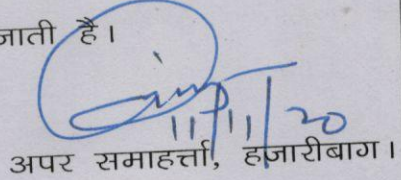 जाती है।
11/11/20
अपर समाहर्त्ता, हजारीबाग।